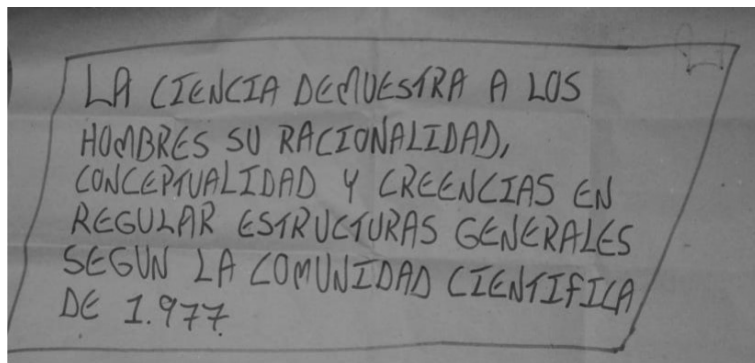 LA CIENCIA DEMUESTRA A LOS
HOMBRES SU RACIONALIDAD,
CONCEPTUALIDAD Y CREENCIAS EN
REGULAR ESTRUCTURAS GENERALES
SEGUN LA COMUNIDAD CIENTIFICA
DE 1.977